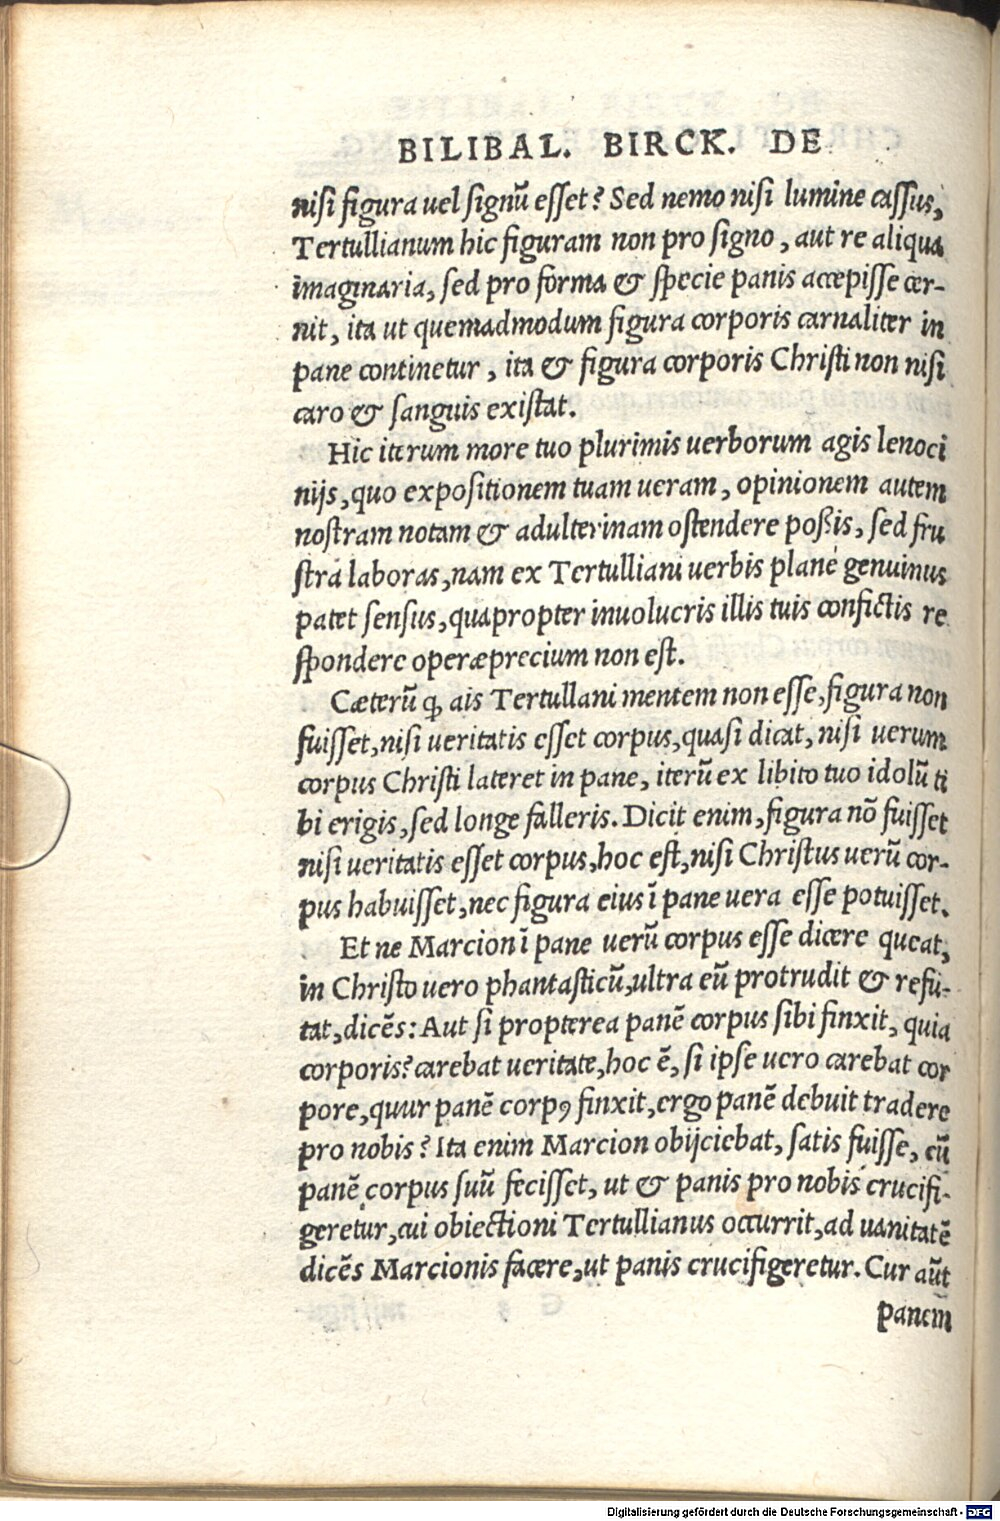 BILIBAL. BIRCK. DE
nisi figura uel signũ esset? Sed nemo nisi lumine cassus,
Tertullianum hic figuram non pro signo, aut re aliqua
imaginaria, sed pro forma & specie panis accepisse cer-
nit, ita ut quemadmodum figura corporis carnaliter in
pane continetur, ita & figura corporis Christi non nisi
caro & sanguis existat.
Hic iterum more tuo plurimis uerborum agis lenoci
nijs, quo expositionem tuam ueram, opinionem autem
nostram notam & adulterinam ostendere poßis, sed fru
strà laboras, nam ex Tertulliani uerbis planè genuinus
patet sensus, quapropter inuolucris illis tuis confictis re
spondere operæprecium non est.
Cæterũ ꝙ ais Tertullani mentem non esse, figura non
fuisset, nisi ueritatis esset corpus, quasi dicat, nisi uerum
corpus Christi lateret in pane, iterũ ex libito tuo idolũ ti
bi erigis, sed longe falleris. Dicit enim, figura nõ fuisset
nisi ueritatis esset corpus, hoc est, nisi Christus uerũ cor-
pus habuisset, nec figura eius ĩ pane uera esse potuisset.
Et ne Marcion ĩ pane uerũ corpus esse dicere queat,
in Christo uero phantasticũ, ultra eũ protrudit & refu-
tat, dicẽs: Aut si propterea panẽ corpus sibi finxit, quia
corporis? carebat ueritate, hoc ẽ, si ipse uero carebat cor
pore, quur panẽ corpꝰ finxit, ergo panẽ debuit tradere
pro nobis? Ita enim Marcion obijciebat, satis fuisse, cũ
panẽ corpus suũ fecisset, ut & panis pro nobis crucifi-
geretur, cui obiectioni Tertullianus occurrit, ad uanitatẽ
dicẽs Marcionis facere, ut panis crucifigeretur. Cur aũt
panem
Digitalisierung gefördert durch die Deutsche Forschungsgemeinschaft - DFG